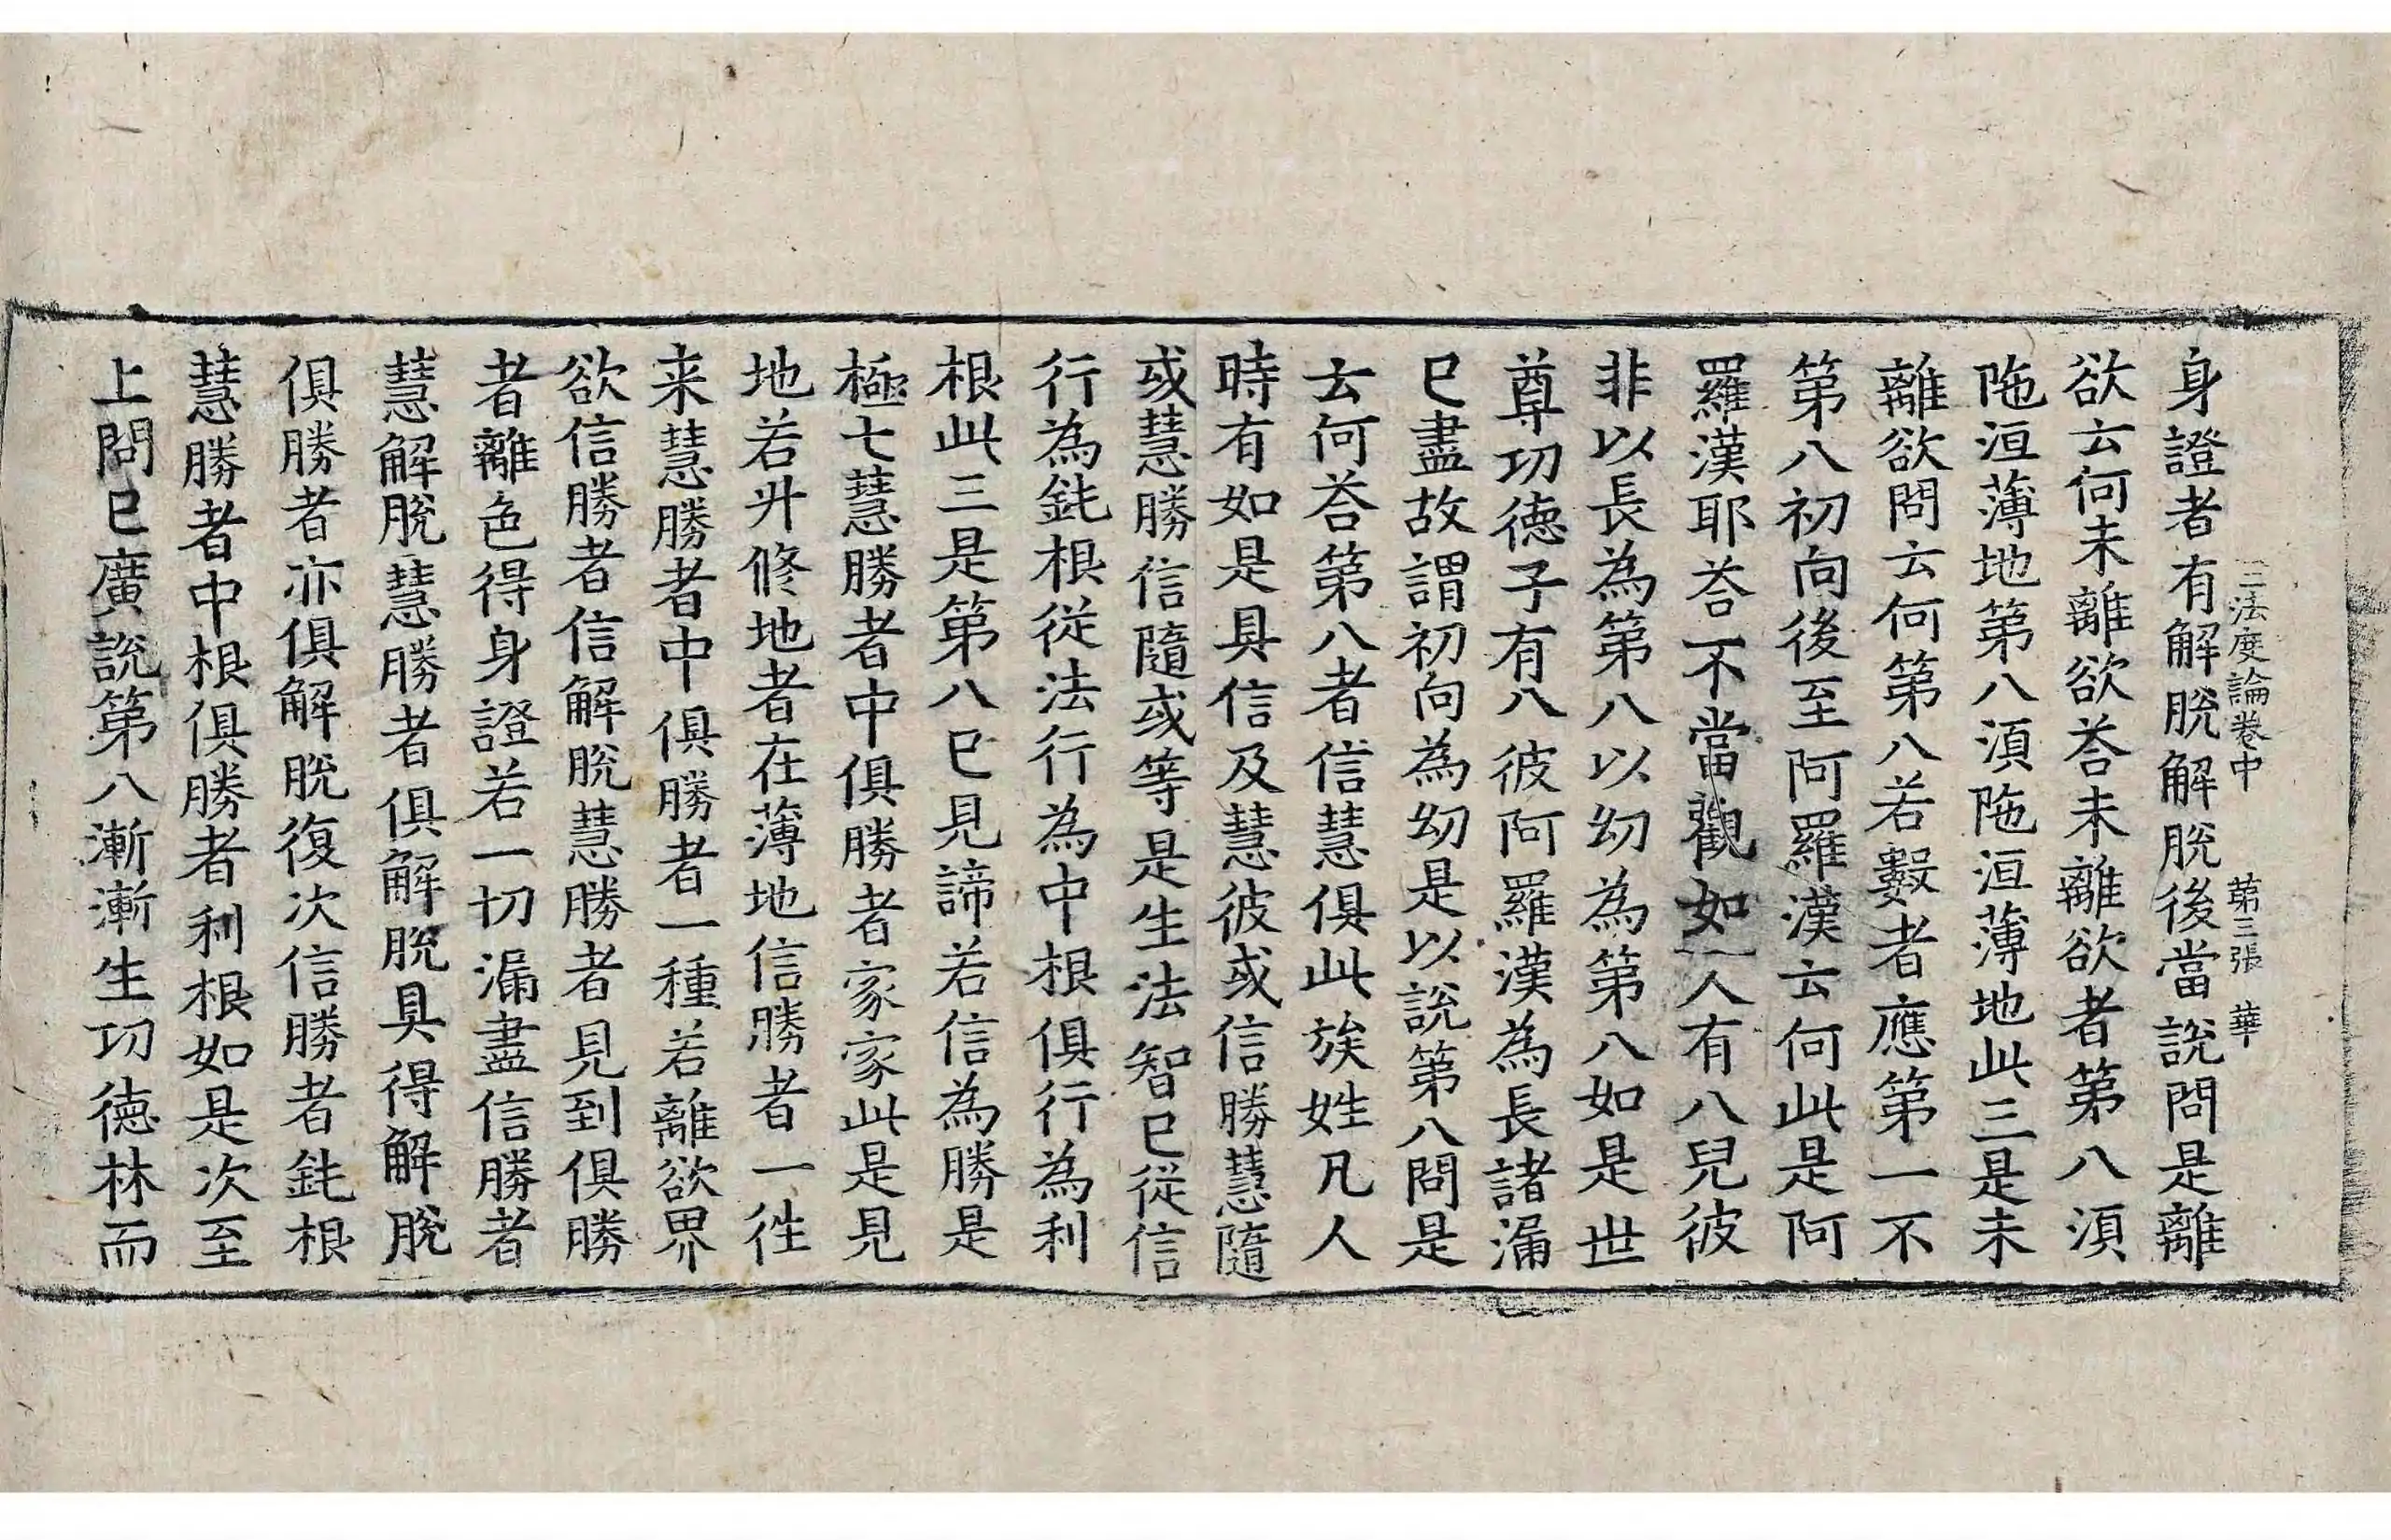 三法度論卷中 第三張 華
身證者有解脫解脫後當說問是離
欲云何未離欲荅未離欲者第八湏
陁洹薄地第八湏陁洹薄地此三是未
離欲問云何第八若數者應第一不
第八初向後至阿羅漢云何此是阿
羅漢耶荅不當觀如一人有八兒彼
非以長為第八以幼為第八如是世
尊功德子有八彼阿羅漢為長諸漏
已盡故謂初向為幼是以說第八問是
云何荅第八者信慧俱此族姓凡人
時有如是具信及慧彼或信勝慧隨
或慧勝信隨或等是生法智已從信
行為鈍根從法行為中根俱行為利
根此三是第八已見諦若信為勝是
極七慧勝者中俱勝者家家此是見
地若升修地者在薄地信勝者一徃
来慧勝者中俱勝者一種若離欲界
欲信勝者信解脫慧勝者見到俱勝
者離色得身證若一切漏盡信勝者
慧解脫慧勝者俱解脫具得解脫
俱勝者亦俱解脫復次信勝者鈍根
慧勝者中根俱勝者利根如是次至
上問已廣說第八漸漸生功德林而